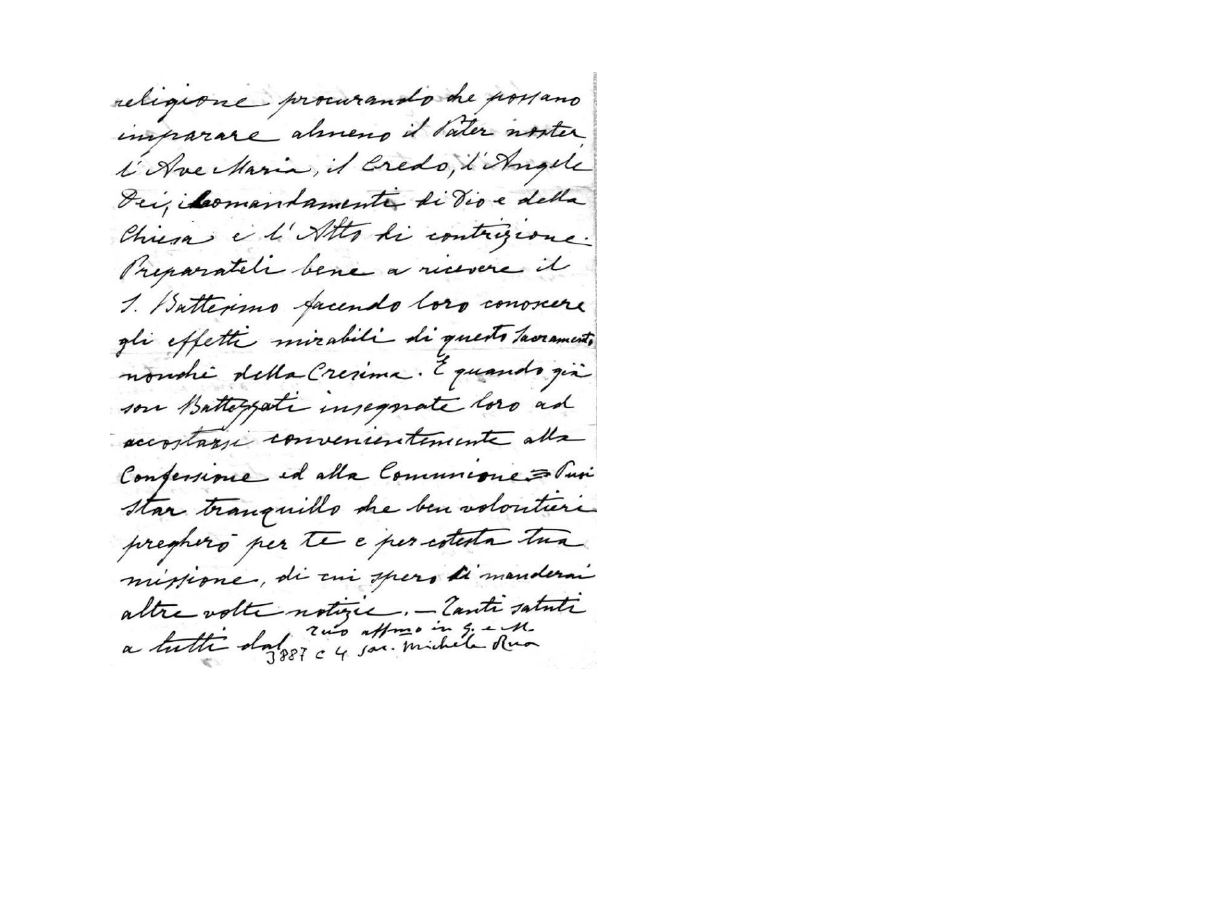 religione procurando che possano
imparare almeno il Pater noster,
l'Ave Maria, il Credo, l'Angele
Dei, i Comandamenti di Dio e della
Chiesa e l'Atto di contrizione.
Preparateli bene a ricevere il
S. Battesimo facendo loro conoscere
gli effetti mirabili di questo Sacramento
nonchè della Cresima. E quando già
son Battezzati insegnate loro ad
accostarsi convenientemente alla
Confessione ed alla Comunione = Puoi
star tranquillo che ben volontieri
pregherò per te e per cotesta tua
missione, di cui spero di manderai
altre volte notizie. — Tanti saluti
a tutti dal
Tuo affmo in G. e M.
Sac. Michele Rua
3887 C 4